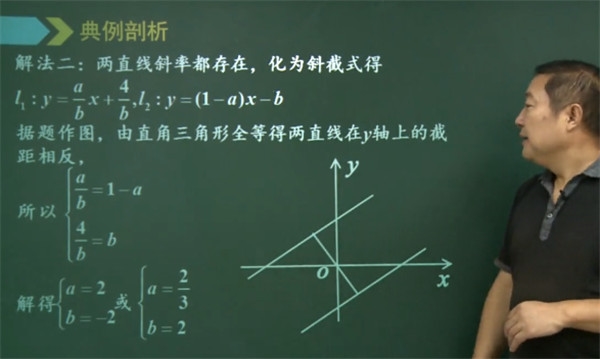 典例剖析
解法二：两直线斜率都存在，化为斜截式得
l₁：y=a/b x+4/b，l₂：y=(1-a)x-b
据题作图，由直角三角形全等得两直线在y轴上的截
距相反，
所以 { a/b=1-a
4/b=b
解得 { a=2 b=-2 或 { a=2/3 b=2
y
O
x